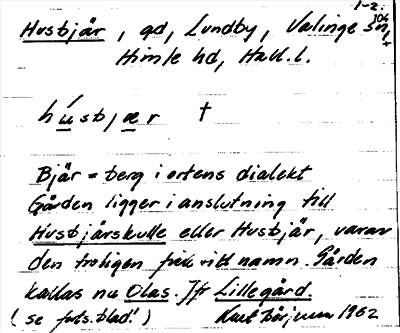 1-2.
Husbjär, gd, Lundby, Valinge sn,
104
Himle hd, Hall. l.
húsbjær †
Bjär = berg i ortens dialekt
Gården ligger i anslutning till
Husbjärskulle eller Husbjär, varav
den troligen fick sitt namn. Gården
kallas nu Olas. Jfr Lillegård.
(se forts. blad!) 1962